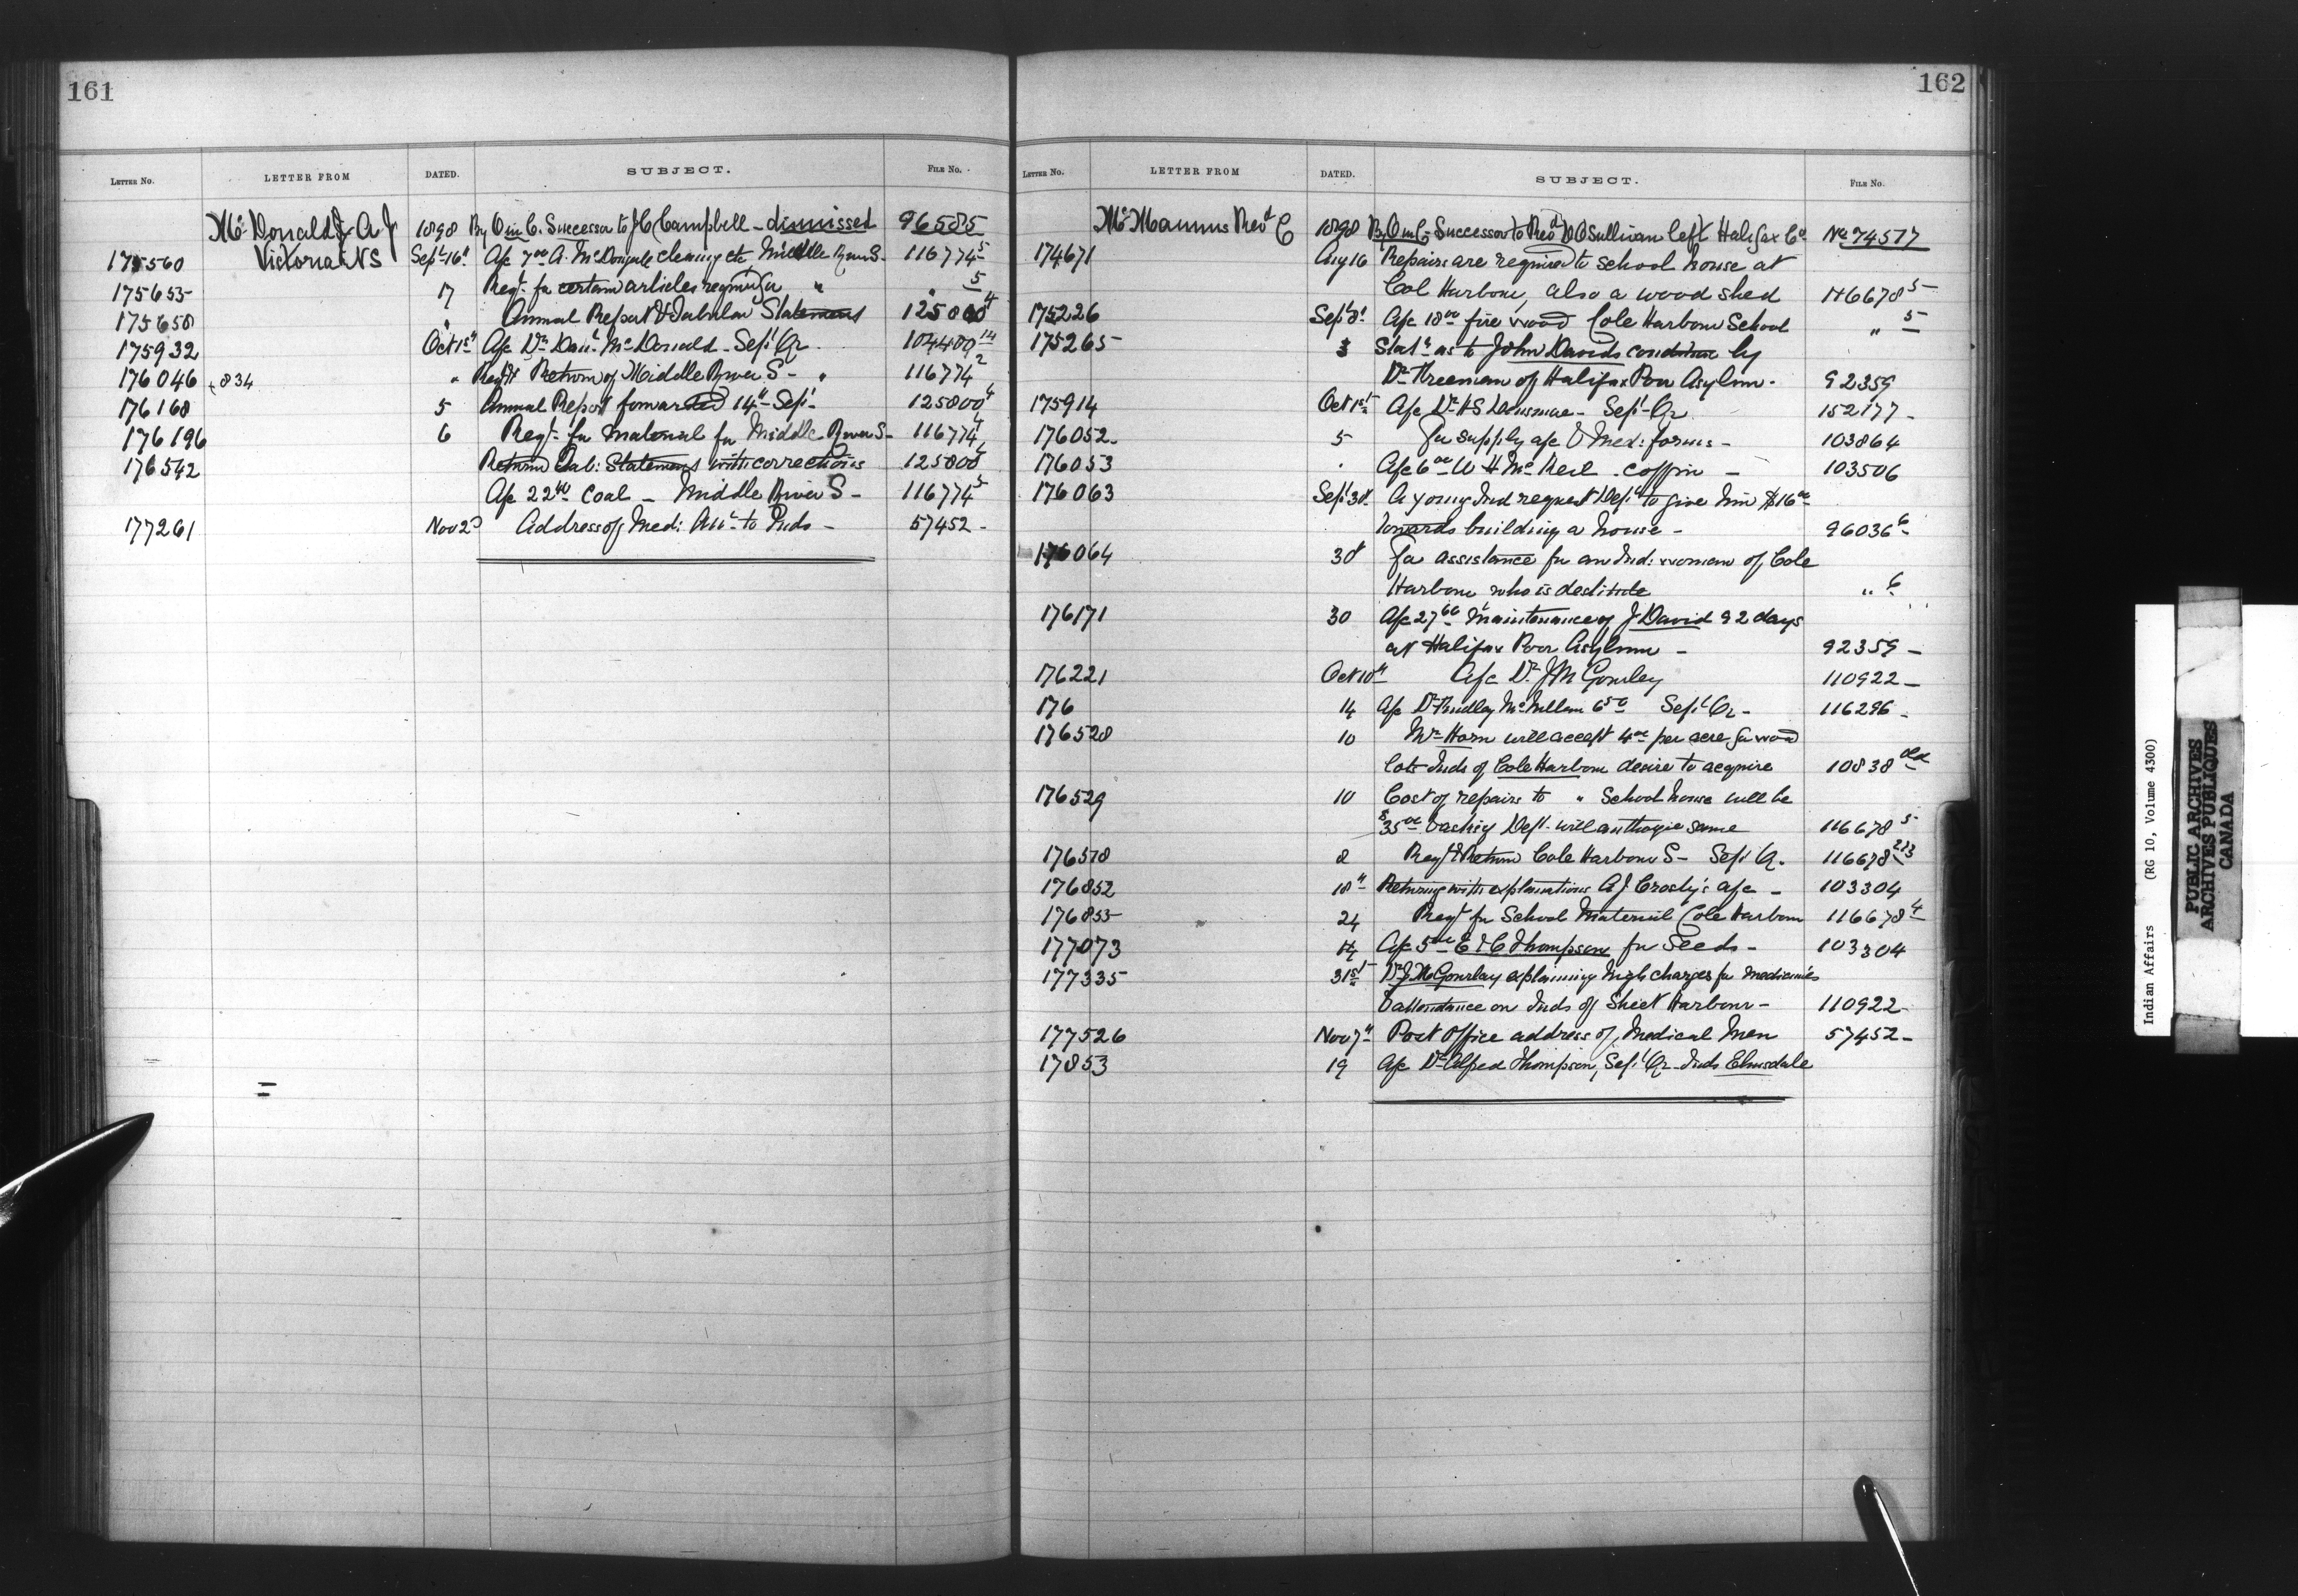 161
LETTER No. LETTER FROM DATED. SUBJECT. FILE No.
McDonald J. A. J 1898 By O in C. Successor to J C Campbell - dismissed 96585
175560 Victoria NS Sept 16th A/c 7 00 A. McDougall cleaning etc Middle River S- 116774 5
175655 17 Reqt. for certain articles required for " " 5
175658 " Annual Report & Tabular Statement 125800 4
175932 Oct 1st A/c Dr. Danl McDonald - Sept Qr. 104400 14
176046 + 834 " Return of Middle River S - " 116774 2
176168 5 Annual Report forwarded 14th Sept - 125800 4
176196 6 Reqt. for material for Middle River S- 116774
176542 Return Tab: Statement with corrections 125800
A/c 22 40 Coal - Middle River S - 116774 5
177261 Nov 2d Address of Medl: Att to Inds - 57452 -
162
LETTER No. LETTER FROM DATED. SUBJECT. FILE No.
McManus Revd C 1898 By O in C - Successor to Revd D O Sullivan left Halifax Co No 74517
174671 Aug 16 Repairs are required to school house at
Col Harbour, also a wood shed 116678 5
175226 Sept 8t A/c 18 00 fire wood Cole Harbour School " 5
175265 3 Statt as to John Davids condition by
Dr. Freeman of Halifax Poor Asylum - 92359
175914 Oct 1st A/c Dr. H S - Sept Qr 152177 -
176052 - 5 For supply a/c & Med: forms - 103864
176053 " A/c 6 00 W H McNeil . coffin - 103506
176063 Sept 30 A young Ind request Dept to give him $16 00
towards building a house - 96036 6
176064 30 For assistance for an Ind: woman of Cole
Harbour who is destitute " 6
176171 30 A/c 27 60 maintenance of J David 92 days
at Halifax Poor Asylum - 92359 -
176221 Oct 10th A/c Dr. J M Gourley 110922 -
176 14 A/c Dr. Findley McMillan 6 50 Sept Qr - 116296 -
176528 10 Mr. Horn will accept 4 00 per acre for wood
lots Inds of Cole Harbour desire to acquire 10838 old
176529 10 Cost of repairs to " School house will be
$35 00 & asking Dept. will authorize same 116678 5
176578 8 & Return Cole Harbour S - Sept Q. 116678 2&3
176852 18th Returning with explanations A J Crosby's a/c - 103304
176855 24 Reqt for School Material Cole Harbour 116678 4
177073 14 A/c 5 00 E & C Thompson for Seeds - 103304
177335 31st Dr J M Gourlay explaining high charges for medicines
& attendance on Inds of Sheet Harbour - 110922 -
177526 Nov 7th Post Office address of, Medical Men 57452 -
17853 19 A/c Dr Alfred Thompson, Sept Qr - Inds Elmsdale
Indian Affairs (RG 10, Volume 4300)
PUBLIC ARCHIVES
ARCHIVES PUBLIQUES
CANADA